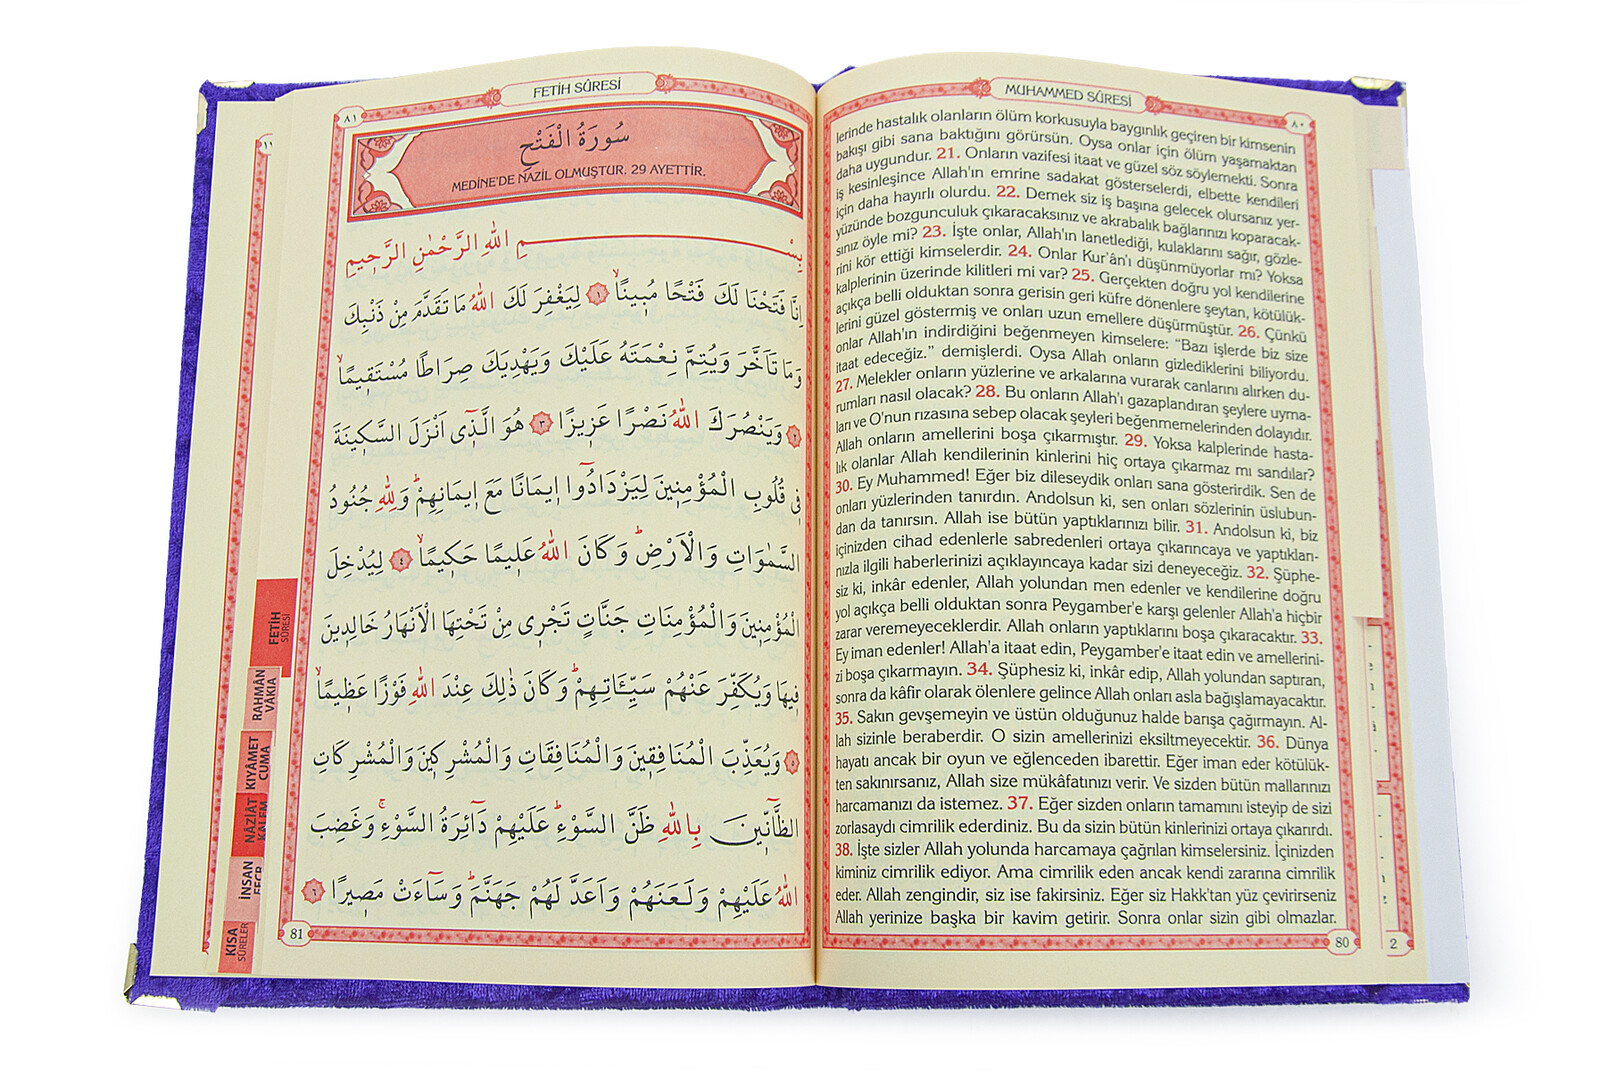 MUHAMMED SÛRESİ
٨٠
lerinde hastalık olanların ölüm korkusuyla baygınlık geçiren bir kimsenin
bakışı gibi sana baktığını görürsün. Oysa onlar için ölüm yaşamaktan
daha uygundur. 21. Onların vazifesi itaat ve güzel söz söylemekti. Sonra
iş kesinleşince Allah'ın emrine sadakat gösterselerdi, elbette kendileri
için daha hayırlı olurdu. 22. Demek siz iş başına gelecek olursanız yer-
yüzünde bozgunculuk çıkaracaksınız ve akrabalık bağlarınızı koparacak-
sınız öyle mi? 23. İşte onlar, Allah'ın lanetlediği, kulaklarını sağır, gözle-
rini kör ettiği kimselerdir. 24. Onlar Kur'ân'ı düşünmüyorlar mı? Yoksa
kalplerinin üzerinde kilitleri mi var? 25. Gerçekten doğru yol kendilerine
açıkça belli olduktan sonra gerisin geri küfre dönenlere şeytan, kötülük-
lerini güzel göstermiş ve onları uzun emellere düşürmüştür. 26. Çünkü
onlar Allah'ın indirdiğini beğenmeyen kimselere: "Bazı işlerde biz size
itaat edeceğiz." demişlerdi. Oysa Allah onların gizlediklerini biliyordu.
27. Melekler onların yüzlerine ve arkalarına vurarak canlarını alırken du-
rumları nasıl olacak? 28. Bu onların Allah'ı gazaplandıran şeylere uyma-
ları ve O'nun rızasına sebep olacak şeyleri beğenmemelerinden dolayıdır.
Allah onların amellerini boşa çıkarmıştır. 29. Yoksa kalplerinde hasta-
lık olanlar Allah kendilerinin kinlerini hiç ortaya çıkarmaz mı sandılar?
30. Ey Muhammed! Eğer biz dileseydik onları sana gösterirdik. Sen de
onları yüzlerinden tanırdın. Andolsun ki, sen onları sözlerinin üslubun-
dan da tanırsın. Allah ise bütün yaptıklarınızı bilir. 31. Andolsun ki, biz
içinizden cihad edenlerle sabredenleri ortaya çıkarıncaya ve yaptıkları-
nızla ilgili haberlerinizi açıklayıncaya kadar sizi deneyeceğiz. 32. Şüphe-
siz ki, inkâr edenler, Allah yolundan men edenler ve kendilerine doğru
yol açıkça belli olduktan sonra Peygamber'e karşı gelenler Allah'a hiçbir
zarar veremeyeceklerdir. Allah onların yaptıklarını boşa çıkaracaktır. 33.
Ey iman edenler! Allah'a itaat edin, Peygamber'e itaat edin ve amellerini-
zi boşa çıkarmayın. 34. Şüphesiz ki, inkâr edip, Allah yolundan saptıran,
sonra da kâfir olarak ölenlere gelince Allah onları asla bağışlamayacaktır.
35. Sakın gevşemeyin ve üstün olduğunuz halde barışa çağırmayın. Al-
lah sizinle beraberdir. O sizin amellerinizi eksiltmeyecektir. 36. Dünya
hayatı ancak bir oyun ve eğlenceden ibarettir. Eğer iman eder kötülük-
ten sakınırsanız, Allah size mükâfatınızı verir. Ve sizden bütün mallarınızı
harcamanızı da istemez. 37. Eğer sizden onların tamamını isteyip de sizi
zorlasaydı cimrilik ederdiniz. Bu da sizin bütün kinlerinizi ortaya çıkarırdı.
38. İşte sizler Allah yolunda harcamaya çağrılan kimselersiniz. İçinizden
kiminiz cimrilik ediyor. Ama cimrilik eden ancak kendi zararına cimrilik
eder. Allah zengindir, siz ise fakirsiniz. Eğer siz Hakk'tan yüz çevirirseniz
Allah yerinize başka bir kavim getirir. Sonra onlar sizin gibi olmazlar.
80
2
FETİH SÛRESİ
٨١
سُورَةُ الْفَتْحِ
MEDİNE'DE NAZİL OLMUŞTUR. 29 AYETTİR.
بِسْمِ اللهِ الرَّحْمٰنِ الرَّح۪يمِ
اِنَّا فَتَحْنَا لَكَ فَتْحًا مُب۪ينًاۙ ١ لِيَغْفِرَ لَكَ اللهُ مَا تَقَدَّمَ مِنْ ذَنْبِكَ
وَمَا تَاَخَّرَ وَيُتِمَّ نِعْمَتَهُ عَلَيْكَ وَيَهْدِيَكَ صِرَاطًا مُسْتَق۪يمًاۙ
٢ وَيَنْصُرَكَ اللهُ نَصْرًا عَز۪يزًا ٣ هُوَ الَّذ۪ٓى اَنْزَلَ السَّك۪ينَةَ
ف۪ى قُلُوبِ الْمُؤْمِن۪ينَ لِيَزْدَادُٓوا ا۪يمَانًا مَعَ ا۪يمَانِهِمْۜ وَلِلّٰهِ جُنُودُ
السَّمٰوَاتِ وَالْاَرْضِۜ وَكَانَ اللهُ عَل۪يمًا حَك۪يمًاۙ ٤ لِيُدْخِلَ
الْمُؤْمِن۪ينَ وَالْمُؤْمِنَاتِ جَنَّاتٍ تَجْر۪ى مِنْ تَحْتِهَا الْاَنْهَارُ خَالِد۪ينَ
ف۪يهَا وَيُكَفِّرَ عَنْهُمْ سَيِّـَٔاتِهِمْۜ وَكَانَ ذٰلِكَ عِنْدَ اللهِ فَوْزًا عَظ۪يمًاۙ
٥ وَيُعَذِّبَ الْمُنَافِق۪ينَ وَالْمُنَافِقَاتِ وَالْمُشْرِك۪ينَ وَالْمُشْرِكَاتِ
الظَّٓانّ۪ينَ بِاللهِ ظَنَّ السَّوْءِۜ عَلَيْهِمْ دَٓائِرَةُ السَّوْءِۚ وَغَضِبَ
اللهُ عَلَيْهِمْ وَلَعَنَهُمْ وَاَعَدَّ لَهُمْ جَهَنَّمَۜ وَسَٓاءَتْ مَص۪يرًا ٦
81
FETİH
SÛRESİ
RAHMÂN
VÂKIA
KIYÂMET
CUMA
NÂZİÂT
KALEM
İNSAN
FECR
KISA
SÛRELER